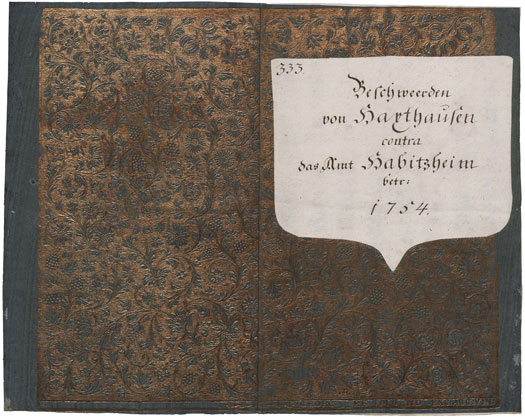 333.
Beschweerden
von Harthausen
contra
das Amt Habitzheim
betr:
1754.